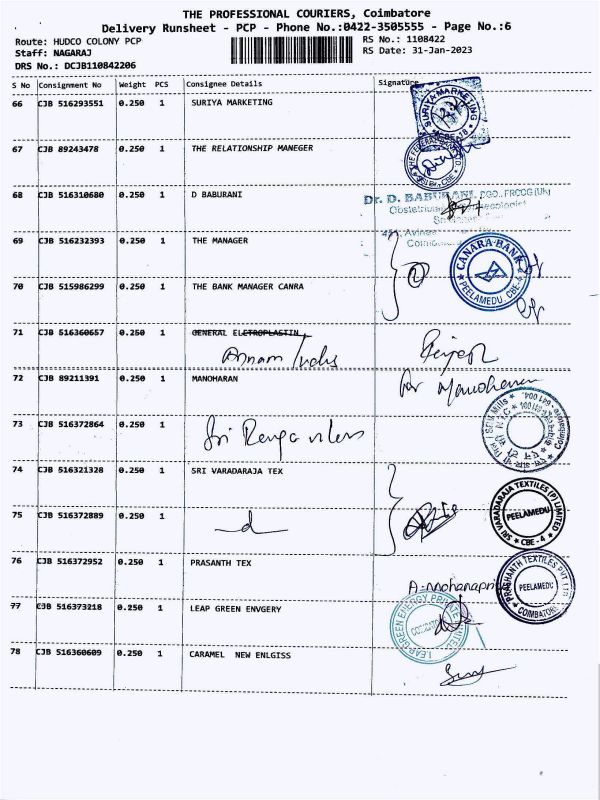 THE PROFESSIONAL COURIERS, Coimbatore
Delivery Runsheet - PCP - Phone No.:0422-3505555 - Page No.:6
Route: HUDCO COLONY PCP
RS No.: 1108422
Staff: NAGARAJ
RS Date: 31-Jan-2023
DRS No.: DCJB110842206
S No Consignment No Weight PCS Consignee Details Signature
66 CJB 516293551 0.250 1 SURIYA MARKETING
SURIYA MARKETING
67 CJB 89243478 0.250 1 THE RELATIONSHIP MANEGER
68 CJB 516310680 0.250 1 D BABURANI
Dr. D. BABURANI, DGO., FRCOG (UK)
69 CJB 516232393 0.250 1 THE MANAGER
CANARA BANK
PEELAMEDU, CBE-4
70 CJB 515986299 0.250 1 THE BANK MANAGER CANRA
71 CJB 516360657 0.250 1 GENERAL ELETROPLASTIN
Annam Indus
72 CJB 89211391 0.250 1 MANOHARAN
for Manoharan
73 CJB 516372864 0.250 1
Sri Renga
74 CJB 516321328 0.250 1 SRI VARADARAJA TEX
SRI VARADARAJA TEXTILES (P) LIMITED
PEELAMEDU
CBE - 4
75 CJB 516372889 0.250 1
76 CJB 516372952 0.250 1 PRASANTH TEX
A-Mohanapriya
PRASHANTH TEXTILES PVT LTD
PEELAMEDU
COIMBATORE
77 CJB 516373218 0.250 1 LEAP GREEN ENVGERY
LEAP GREEN ENERGY PRIVATE LIMITED
78 CJB 516360609 0.250 1 CARAMEL NEW ENLGISS